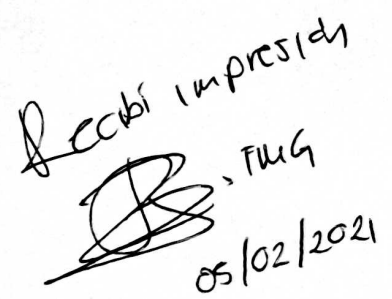 Recibí impresión
FMG
05/02/2021